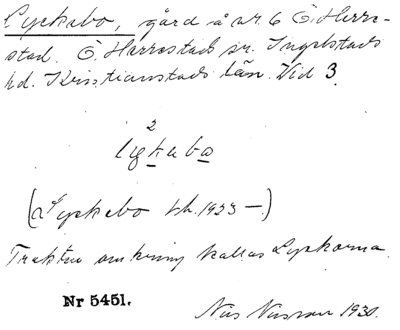 Lyckebo, gård å nr 6 Ö. Herre-
stad. Ö. Herrestads sn. Ingelstads
hd. Kristianstads län. Vid 3.
2
lykabo
(Lyckebo kb. 1923 —)
Trakten omkring kallas Lyckorna.
Nr 5451.
Nils 1930.